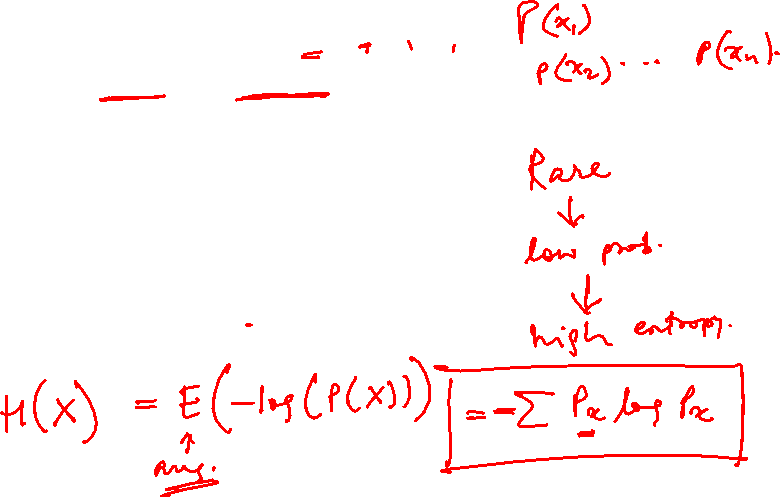 P(x₁)
p(x₂) ... p(xₙ).
Rare
↓
low prob.
↓
high entropy.
H(X) = E(-log(P(X))) = -∑ Pₓ log Pₓ
↑
avg.